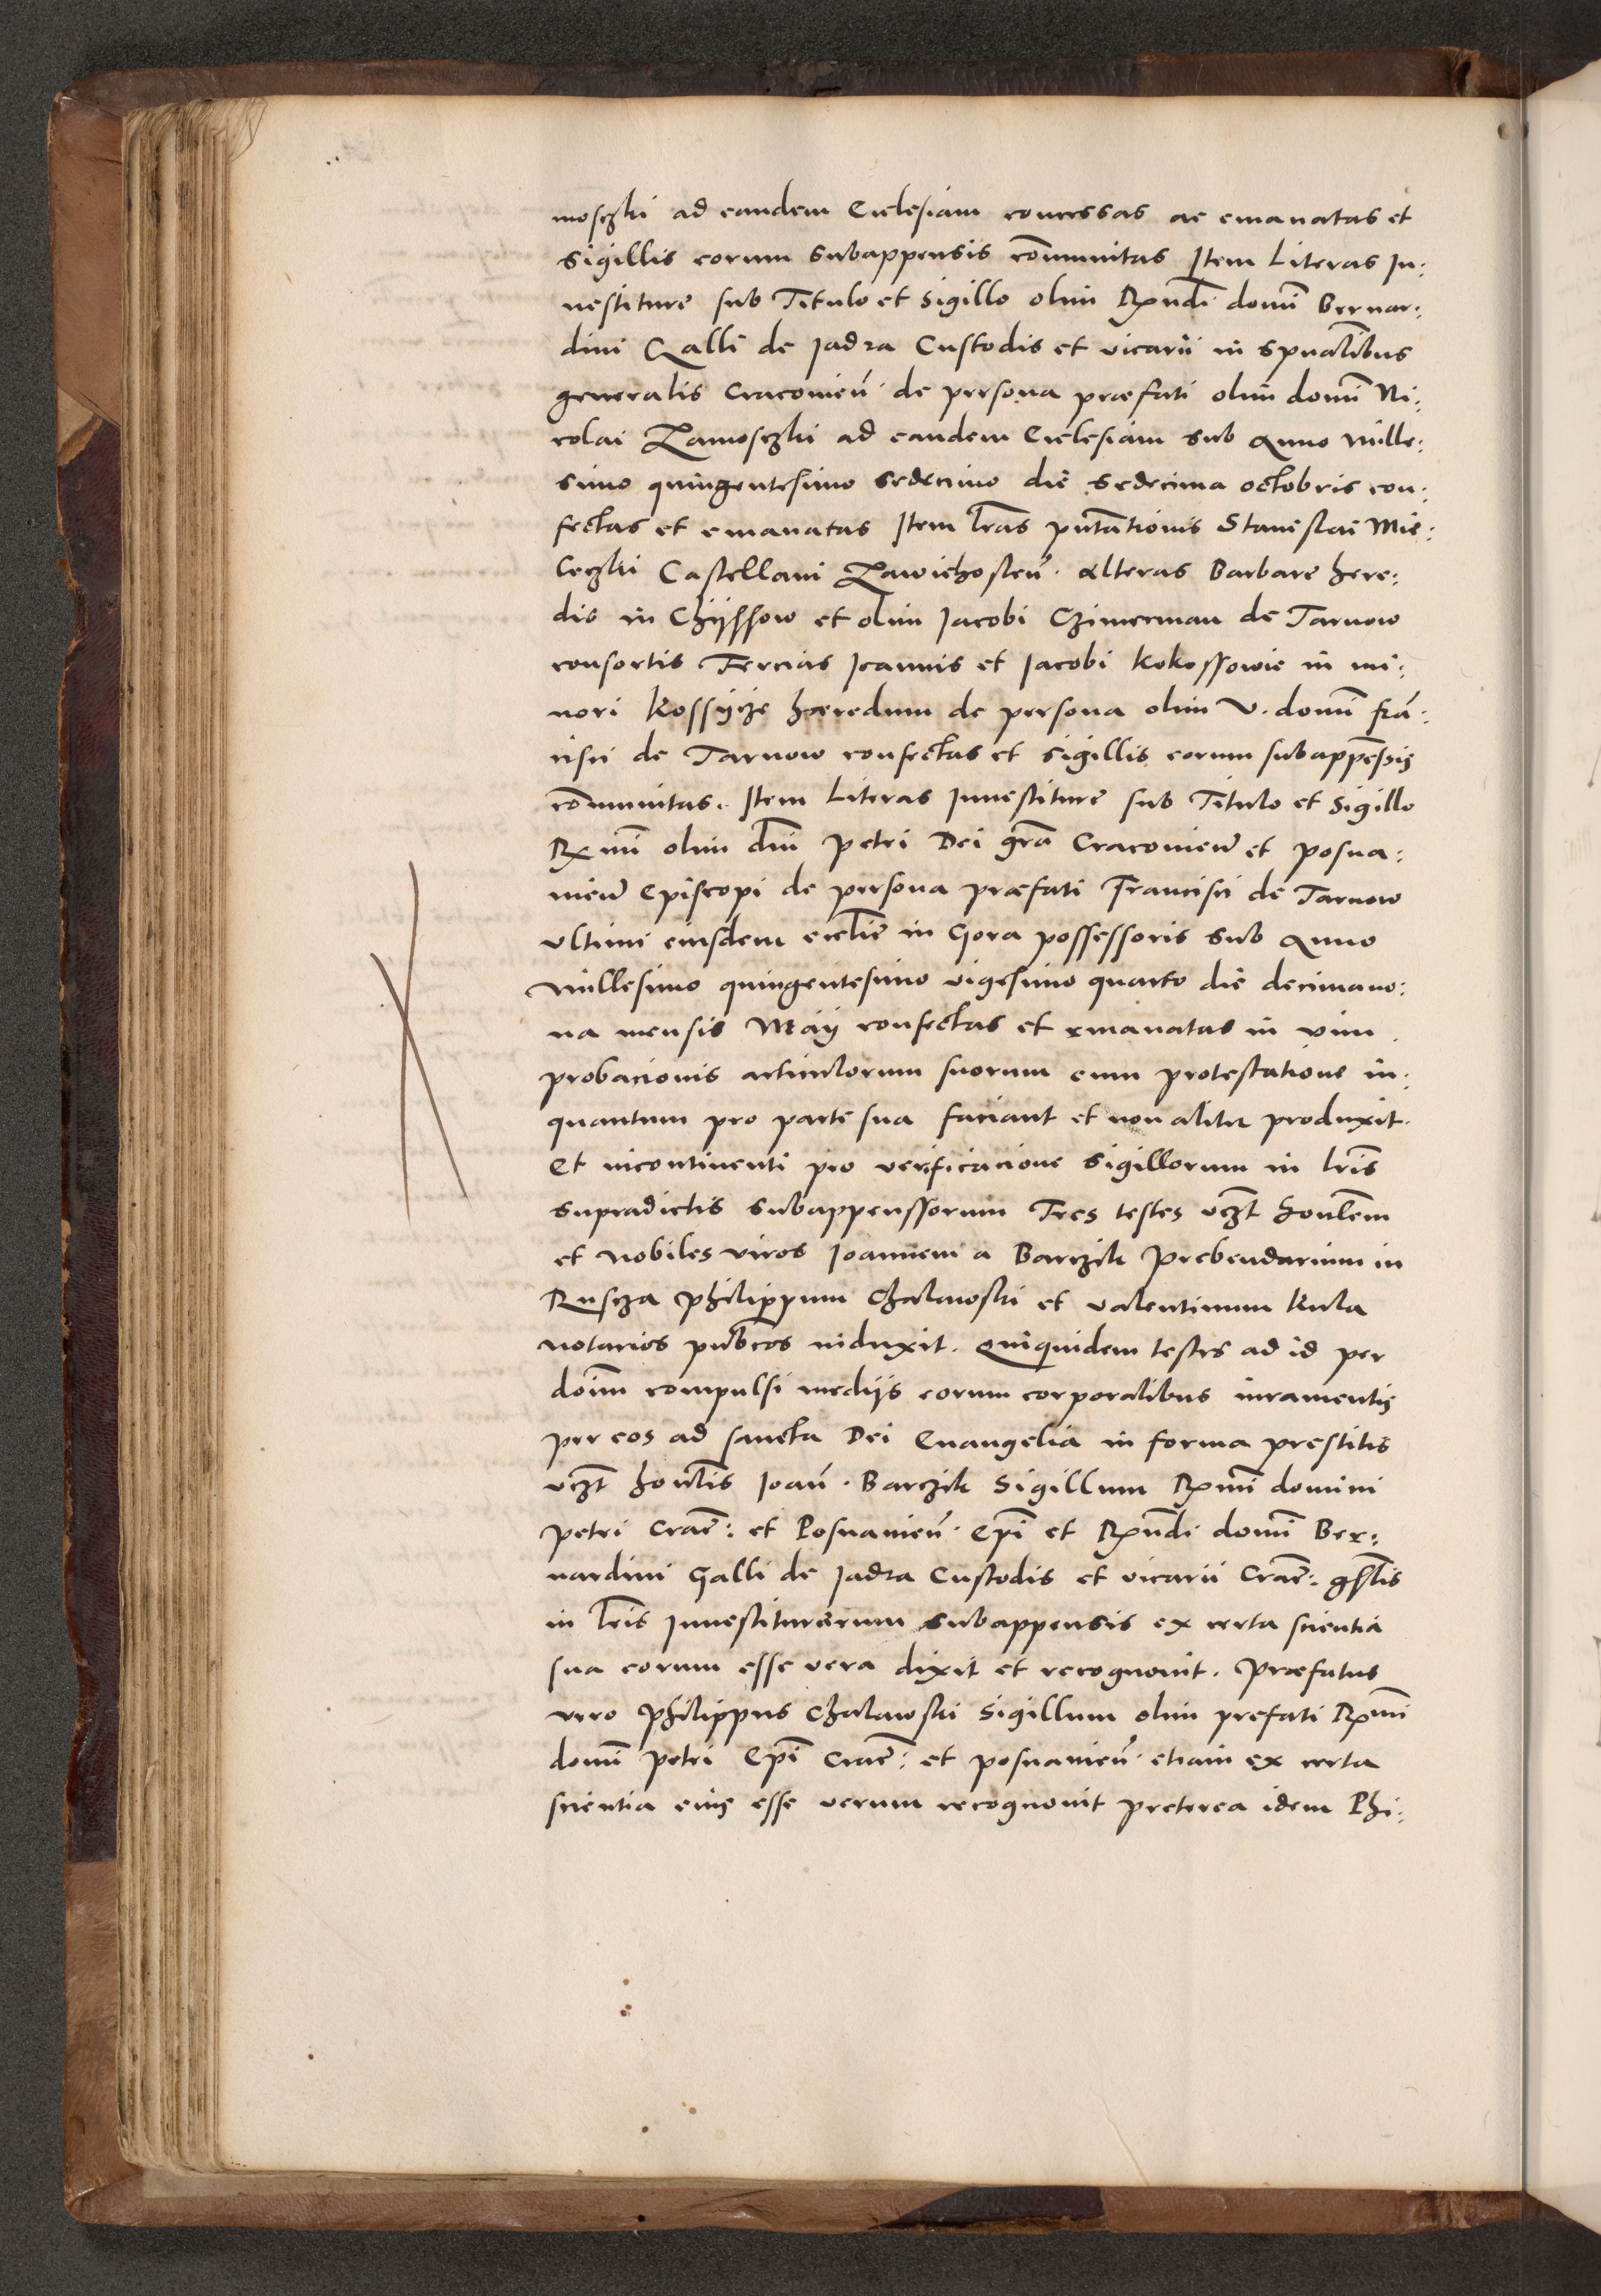 mosczki ad eandem Ecclesiam concessas ac emanatas et
sigillis eorum subappensis cōmunitas Item Literas In:
uestiture sub Titulo et Sigillo olim Rxndi domī Bernar:
dini Galli de Iadra Custodis et vicarii in spualibus
generalis Cracouieñ de persona præfati olim domī Ni:
colai Zamosczki ad eandem Ecclesiam sub Anno Mille:
simo quingentesimo sedecimo die sedecima octobris con:
fectas et emanatas Item Lras pntationis Stanislai Mie:
leczki Castellani Zawichosteñ. Alteras Barbare here:
dis in Chijssow et olim Iacobi Czimerman de Tarnow
consortis Tercias Ioannis et Iacobi Kokossowie in mi:
nori Kossijcze hæredum de persona olim V. domī frā:
cisci de Tarnow confectas et sigillis eorum subappēsis
cōmunitas. Item Literas Inuestiture sub Titulo et Sigillo
Rxmi olim dni Petri Dei gra Cracouieñ et Posna:
nieñ Episcopi de persona præfati Francisci de Tarnow
vltimi eiusdem ecclie in Gora possessoris sub Anno
Millesimo quingentesimo vigesimo quarto die decimano:
na mensis Maij confectas et emanatas in vim
probacionis articulorum suorum cum protestatione in:
quantum pro parte sua faciant et non aliter produxit.
Et incontinenti pro verificacione sigillorum in lris
supradictis subappenssorum Tres testes vczt honlem
et nobiles viros Ioannem a Barczik Prebendarium in
Ruscza Philippum Chalawski et Valentinum Kula
notarios pubcos induxit. Quiquidem testes ad id per
doim compulsi medijs eorum corporalibus iuramentis
per eos ad sancta Dei Euangelia in forma prestitis
vczt honlis Ioañ. Barczik Sigillum Rxmi domini
Petri Crac: et Posnanieñ. Epī et Rxndi domī Ber:
nardini Galli de Iadra Custodis et vicarii Crac: gnlis
in Lris Inuestiturarum subappensis ex certa scientia
sua eorum esse vera dixit et recognouit. Præfatus
vero Philippus Chalawski Sigillum olim prefati Rxmi
domī Petri Epī Crac: et posnanieñ. etiam ex certa
scientia eius esse verum recognouit preterea idem Phi: